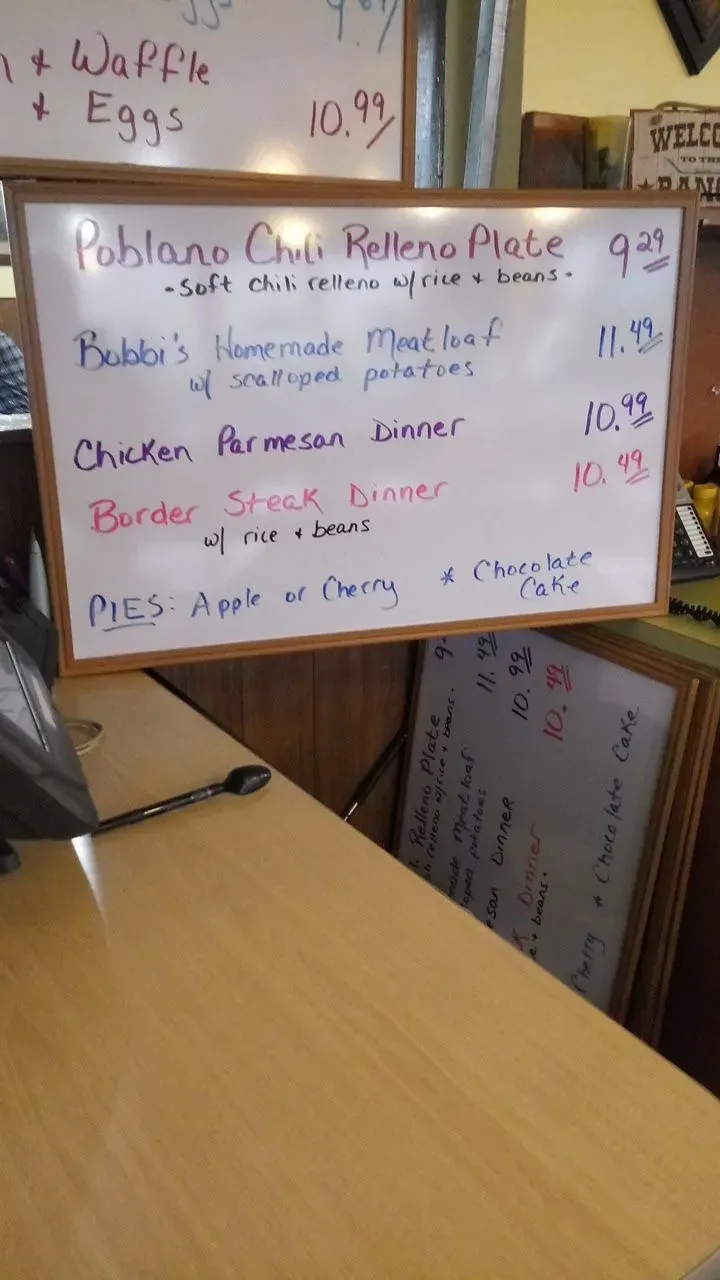 + Waffle
+ Eggs 10.99
WELCO
TO THE
RAN
Poblano Chili Relleno Plate 9 29
-Soft chili relleno w/rice + beans-
Bobbi's Homemade Meatloaf 11.49
w/ scalloped potatoes
Chicken Parmesan Dinner 10.99
Border Steak Dinner 10.49
w/ rice + beans
PIES: Apple or Cherry * Chocolate
Cake
Relleno Plate 9
relleno w/rice + beans.
made Meatloaf 11.49
oped potatoes
esan Dinner 10.99
K Dinner 10.49
e + beans.
Cherry * Chocolate Cake